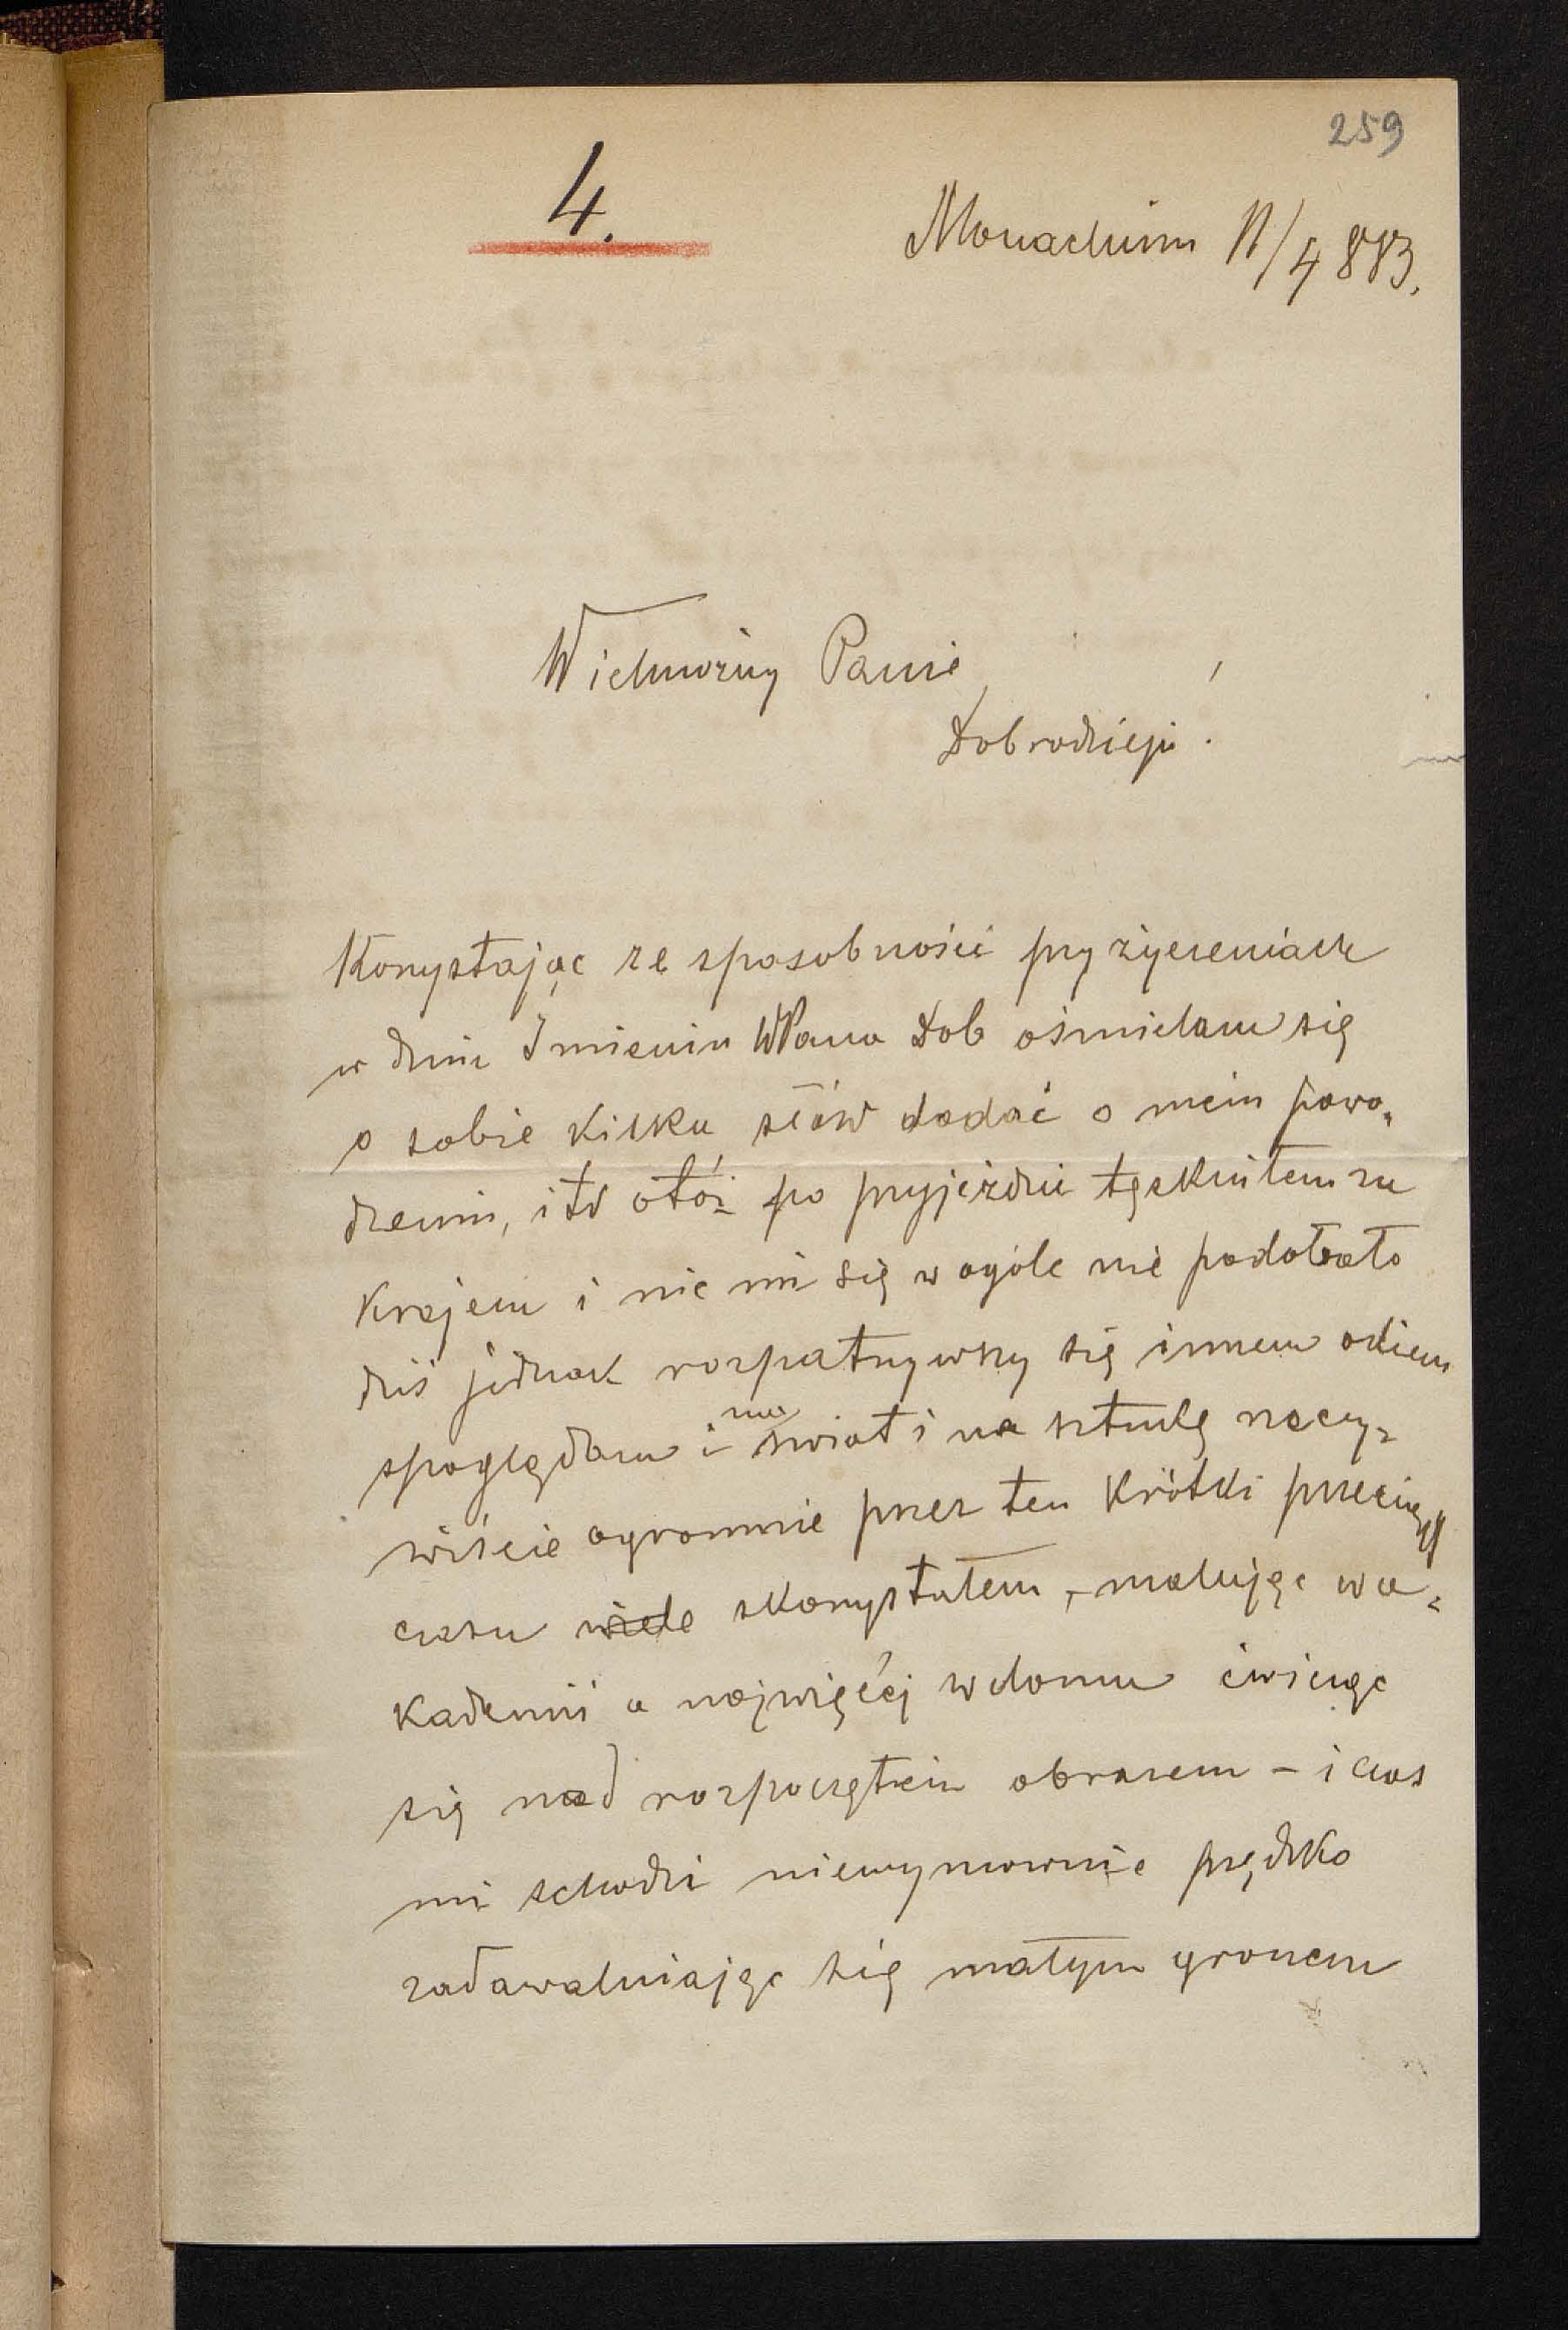 259
4.
Monachium 11/4 883.
Wielmożny Panie
Dobrodzieju!
Korzystając ze sposobności przy życzeniach
w dniu Imienin WPana Dob ośmielam się
o sobie kilku słów dodać o mein powo„
dzeniu, itd otóż po przyjeździe tęskniłem za
krajem i nic mi się w ogóle nie podobało
dziś jednak rozpatrzywszy się innem okiem
spoglądam i na świat i na sztukę rzeczy„
wiście ogromnie przez ten krótki przeciąg
czasu wiele skorzystałem, malując w a„
kademii a najwięcéj w domu ćwicząc
się nad rozpoczętein obrazem – i czas
mi schodzi niewymownie prędko
zadawalniając się małym gronem